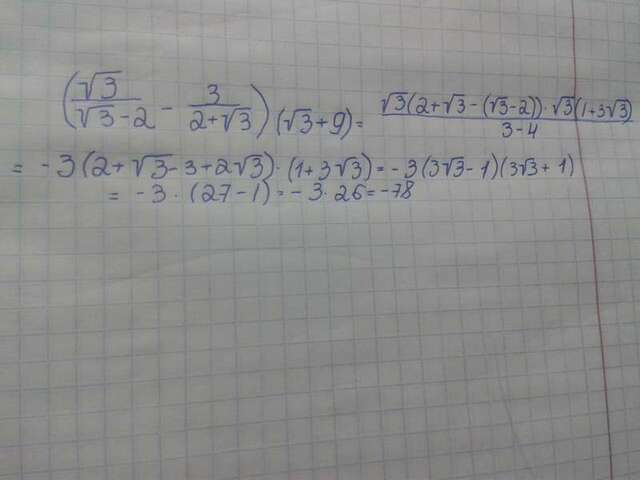 (√3/(√3-2) - 3/(2+√3)) (√3+9) = √3(2+√3-(√3-2))·√3(1+3√3)/(3-4)
= -3(2+√3-3+2√3)·(1+3√3) = -3(3√3-1)(3√3+1)
= -3·(27-1) = -3·26 = -78